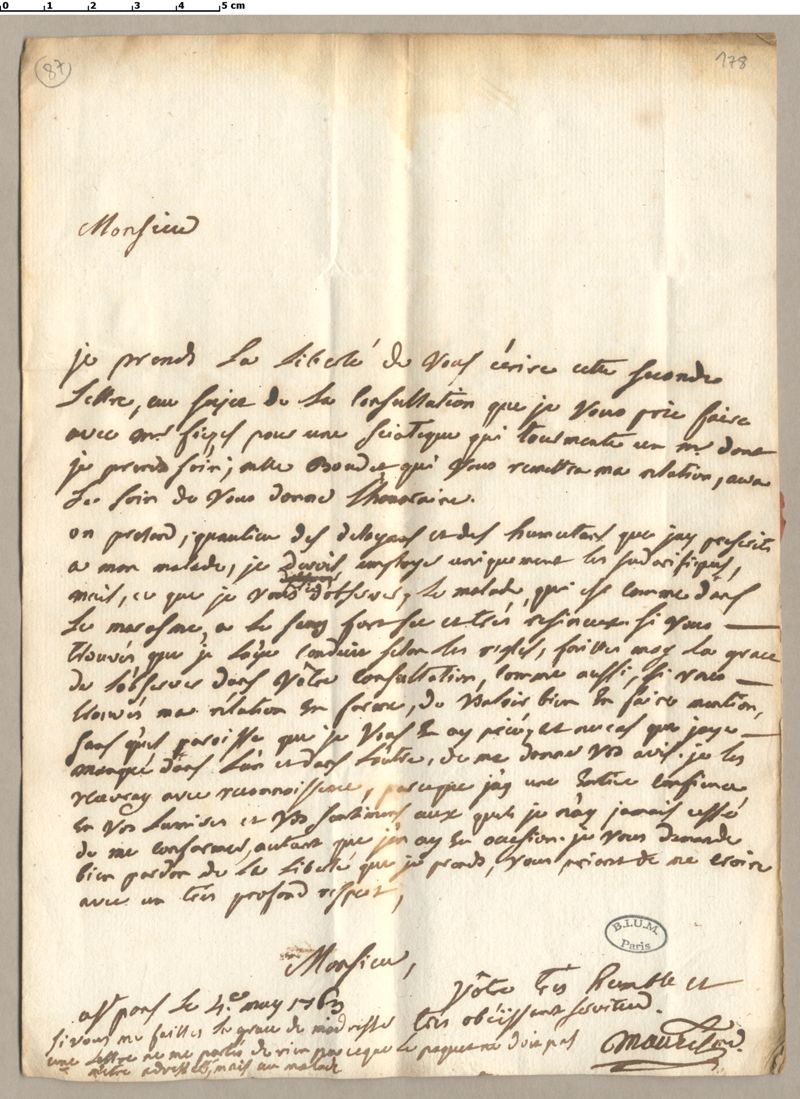 0 1 2 3 4 5 cm
87
178
Monsieur
je prends La Liberté de Vous écrire cette seconde
Lettre, au sujet de La Consultation que je Vous prie faire
avec mr fizes pour une sciatique qui tourmente un mr dont
je prends soin; mlle qui Vous remettra ma relation, aura
Le soin de Vous donner l'honoraire.
on pretend, qu'au lieu des delayans et des humectans que j'ay prescrits
a mon malade, je devois, employer uniquement les sudorifiques,
mais, ce que je d'observer, Le malade, qui est comme dans
Le marasme, a Le sang fort sec et très resineux. si Vous
trouvés que je L'aye conduit selon les regles, faittes moy La grace
de L'observer dans Vôtre Consultation, comme aussi, si vous
trouvés ma relation En forme, de Valoir bien En faire mention,
sans qu'il paroisse que je Vous En ay et au cas que j'aye
manqué dans L'un et dans L'autre, de me donner Vos avis. je les
recevray avec reconnoissance, parceque j'ay une Entiere Confiance
En Vos Lumieres et Vos sentimens aux quels je n'ay jamais cessé
de me conformer, autant que j'en ay En occasion. je Vous demande
bien pardon de La Liberté que je prends, Vous priant de me croire
avec un très profond respect,
Monsieur,
Vôtre Très humble et
très obéissant serviteur.
Le 4.e may 1763
si vous me faittes Le grace de m'adresser
une Lettre ne me parlés de rien parceque Le paquet ne doit pas
m'être adressé, mais au malade
B.I.U.M.
Paris